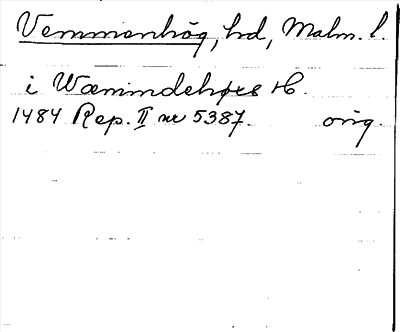 Vemmenhög, hd, Malm. l.
i Wæmindehøes H.
1484 Rep. II nr 5387. orig.